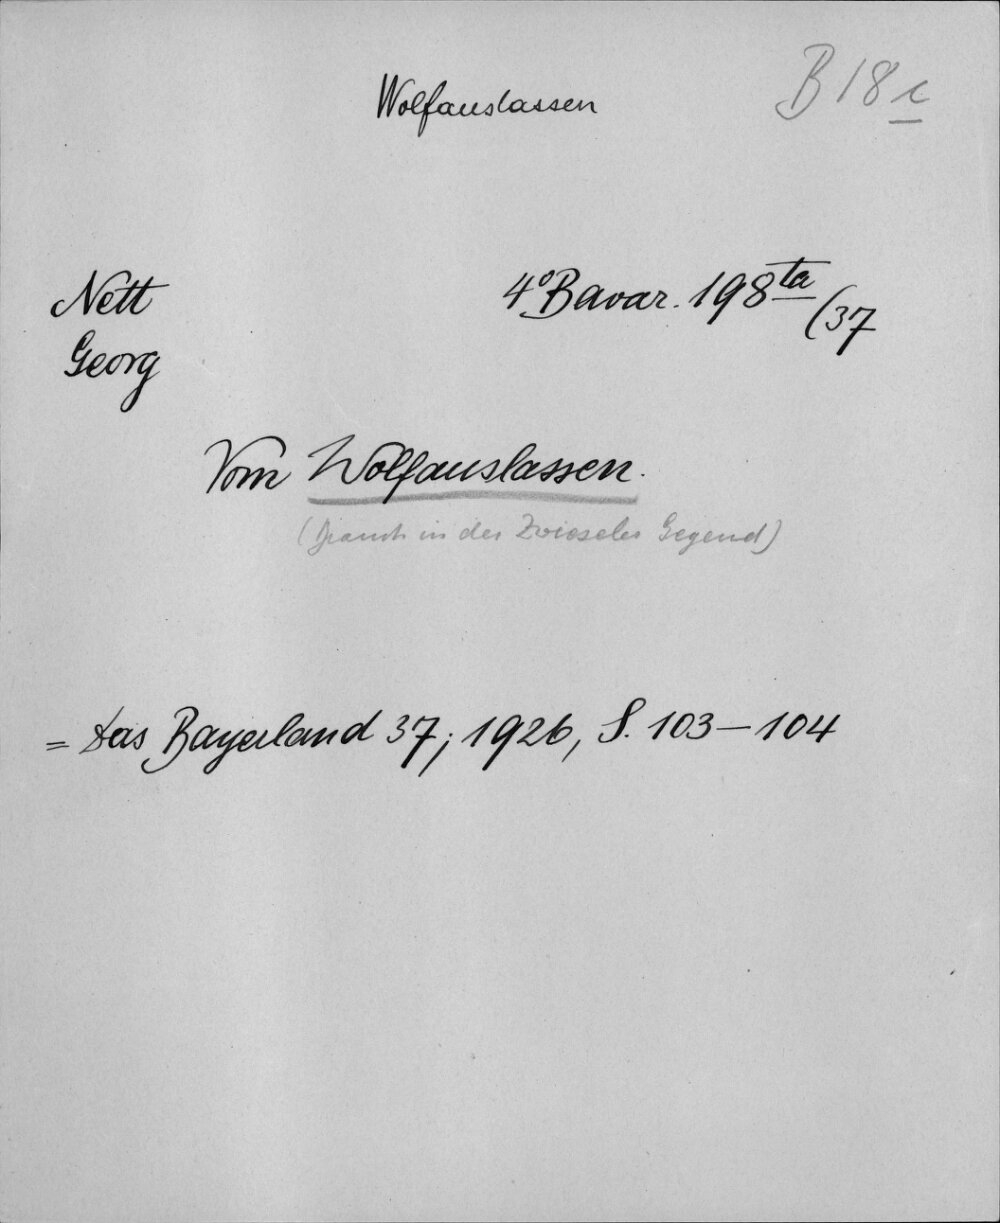 Wolfauslassen
B 18 c
Nett
4° Bavar. 198 ta/(37
Georg
Vom Wolfauslassen.
(Brauch in der Zwieseler Gegend)
= Das Bayerland 37; 1926, S. 103–104